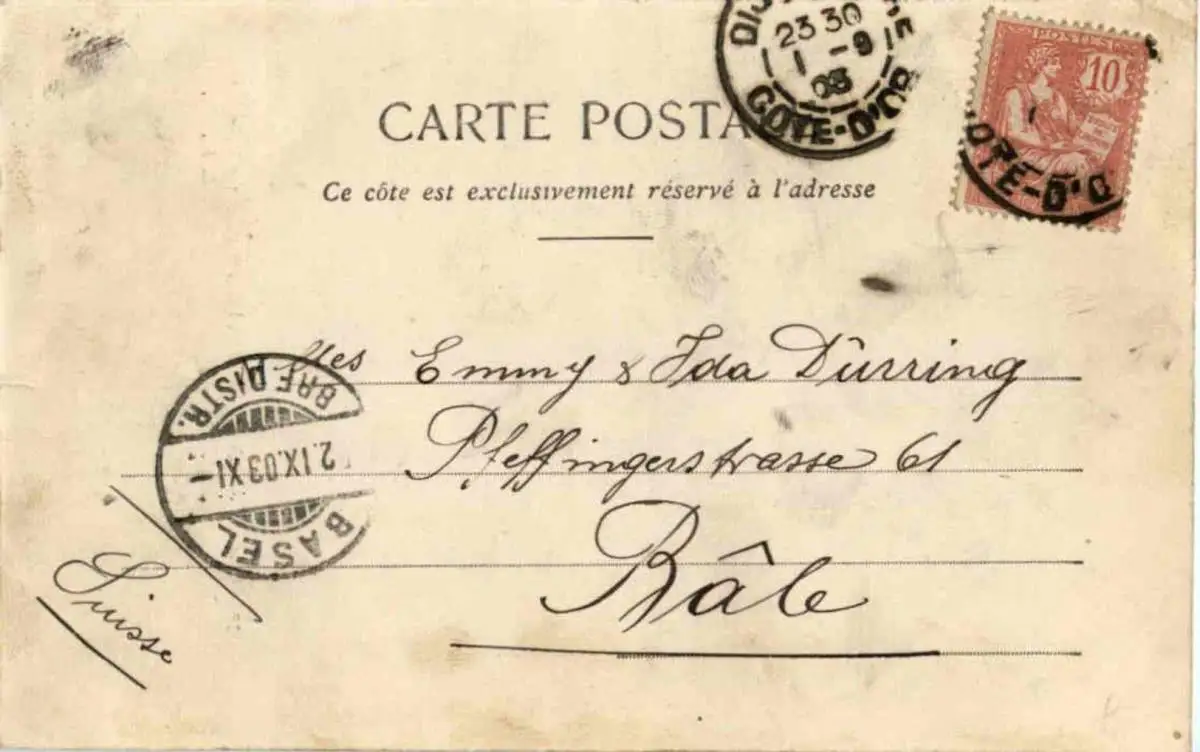 23 30
1 -9
03
COTE-D'OR
POSTES
10
OTE-D'O
CARTE POSTA
Ce côte est exclusivement réservé à l'adresse
lles Emmy & Ida Dürring
Pfeffingerstrasse 61
Bâle
Suisse
BASEL
2.IX.03 XI-
BRF.DISTR.